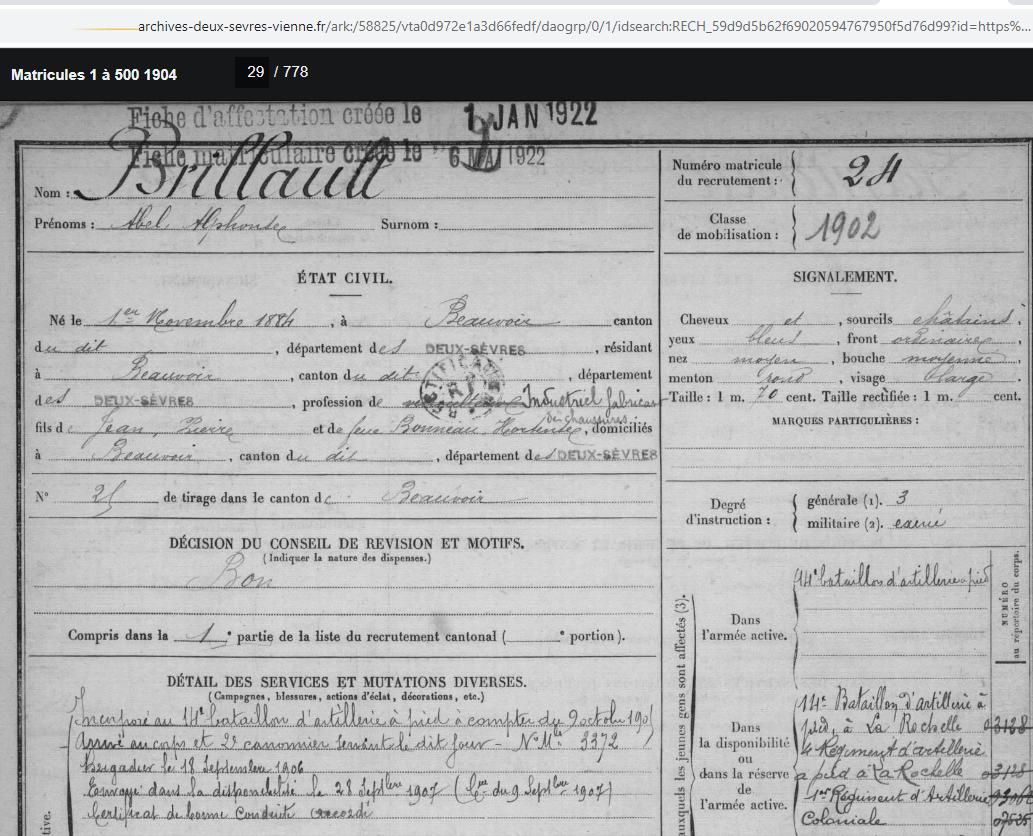 archives-deux-sevres-vienne.fr/ark:/58825/vta0d972e1a3d66fedf/daogrp/0/1/idsearch:RECH_59d9d5b62f69020594767950f5d76d99?id=https%...
Matricules 1 à 500 1904 29 / 778
Fiche d'affectation créée le 1 JAN 1922
Fiche matriculaire créée le 6 MAI 1922
Nom : Brillault
Prénoms : Abel Alphonse Surnom :
Numéro matricule du recrutement : 24
Classe de mobilisation : 1902
ÉTAT CIVIL.
Né le 1er Novembre 1884, à Beauvoir canton
du dit, département des DEUX-SÈVRES, résidant
à Beauvoir, canton du dit, département
des DEUX-SÈVRES, profession de Industriel fabricant
de chaussures
fils de Jean, Pierre et de feue Bonneau, Hortense, domiciliés
à Beauvoir, canton du dit, département des DEUX-SÈVRES
N° 25 de tirage dans le canton de Beauvoir
SIGNALEMENT.
Cheveux et, sourcils châtains,
yeux bleus, front ordinaire,
nez moyen, bouche moyenne,
menton rond, visage large.
Taille : 1 m. 70 cent. Taille rectifiée : 1 m. cent.
MARQUES PARTICULIÈRES :
Degré d'instruction :
générale (1). 3
militaire (2). exercé
DÉCISION DU CONSEIL DE REVISION ET MOTIFS.
(Indiquer la nature des dispenses.)
Bon
Compris dans la 1e partie de la liste du recrutement cantonal ( e portion).
DÉTAIL DES SERVICES ET MUTATIONS DIVERSES.
(Campagnes, blessures, actions d'éclat, décorations, etc.)
Incorporé au 14e bataillon d'artillerie à pied à compter du 9 octobre 190
Arrivé au corps et 2e canonnier servant le dit jour - N° Mle 3372
Brigadier le 18 Septembre 1906
Envoyé dans la disponibilité le 28 Septbre 1907 (Cre du 9 Septbre 1907)
Certificat de bonne Conduite accordé
tive.
auxquels les jeunes gens sont affectés (3).
NUMÉRO
au répertoire du corps.
Dans l'armée active.
14e bataillon d'artillerie à pied
Dans la disponibilité ou dans la réserve de l'armée active.
14e Bataillon d'artillerie à
pied, à La Rochelle 03128
4e Régiment d'artillerie
à pied à La Rochelle 03128
1er Régiment d'Artillerie
Coloniale